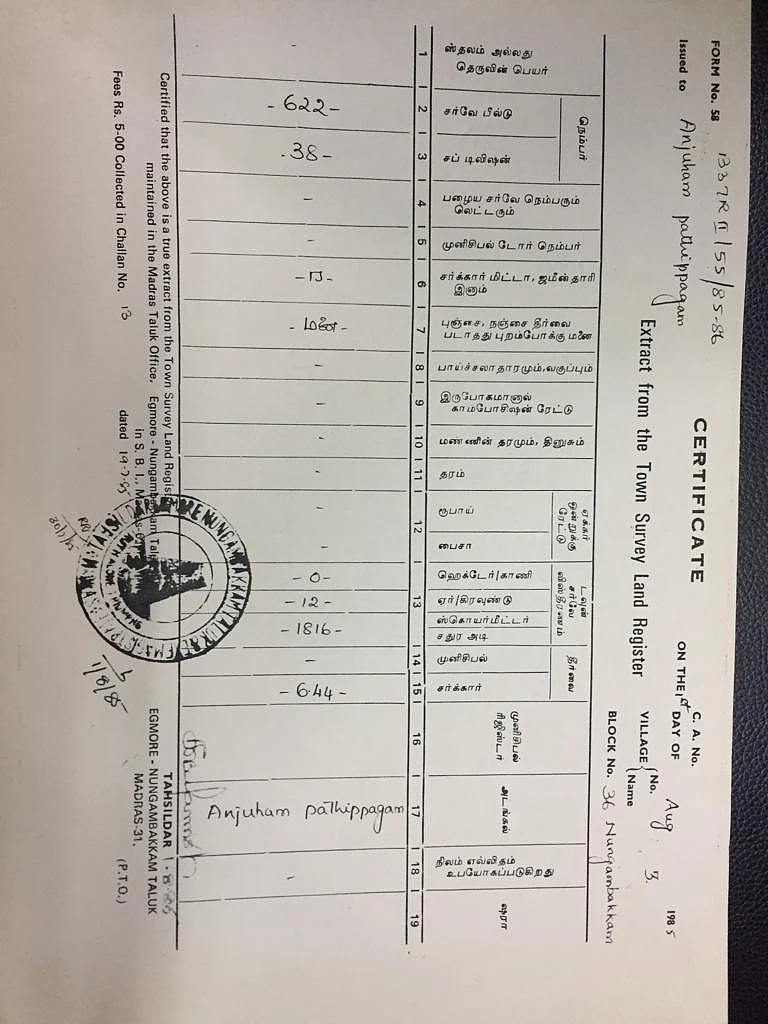 FORM No. 58
Issued to Anjuham pathippagam
CERTIFICATE
C. A. No.
ON THE 1st DAY OF Aug 1985
Extract from the Town Survey Land Register
VILLAGE { No. 3.
Name Nungambakkam
BLOCK No. 36
ஸ்தலம் அல்லது தெருவின் பெயர்
நெம்பர்
சர்வே பீல்டு
சப் டிவிஷன்
பழைய சர்வே நெம்பரும் லெட்டரும்
முனிசிபல் டோர் நெம்பர்
சர்க்கார் மிட்டா, ஜமீன்தாரி இனாம்
புஞ்சை, நஞ்சை தீர்வை படாதது புறம்போக்கு மனை
பாய்ச்சலாதாரமும், வகுப்பும்
இருபோகமானால் காமபோசிஷன் ரேட்டு
மண்ணின் தரமும், தினுசும்
தரம்
ஏக்கர் ஒன்றுக்கு ரேட்டு
ரூபாய்
பைசா
டவுன் சர்வே விஸ்தீரணம்
ஹெக்டேர்/காணி
ஏர்/கிரவுண்டு
ஸ்கொயர்மீட்டர் சதுர அடி
தீர்வை
முனிசிபல்
சர்க்கார்
முனிசிபல் ரிஜிஸ்டர்
அடங்கல்
நிலம் எவ்விதம் உபயோகப்படுகிறது
ஷரா
1 2 3 4 5 6 7 8 9 10 11 12 13 14 15 16 17 18 19
- - 622 - - 38 - - - - ர - - மனை - - - - - - - - 0 - - 12 - - 1816 - - - 6.44 - Anjuham pathippagam -
Certified that the above is a true extract from the Town Survey Land Register
maintained in the Madras Taluk Office, Egmore - Nungambakkam Taluk
Fees Rs. 5-00 Collected in Challan No. 13 dated 19-7-85 in S. B. I.,
TAHSILDAR
EGMORE - NUNGAMBAKKAM TALUK
MADRAS-31.
(P.T.O.)